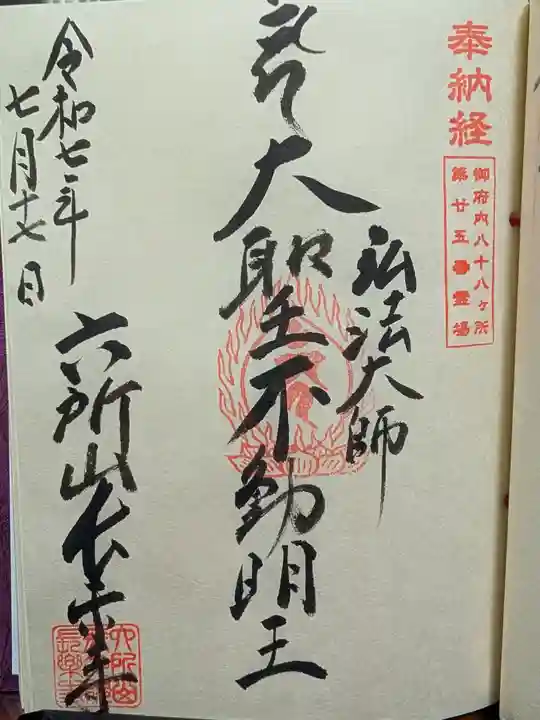 奉納経
御府内八十八ヶ所
第廿五番霊場
弘法大師
大聖不動明王
令和七年
七月十七日
六所山長楽寺